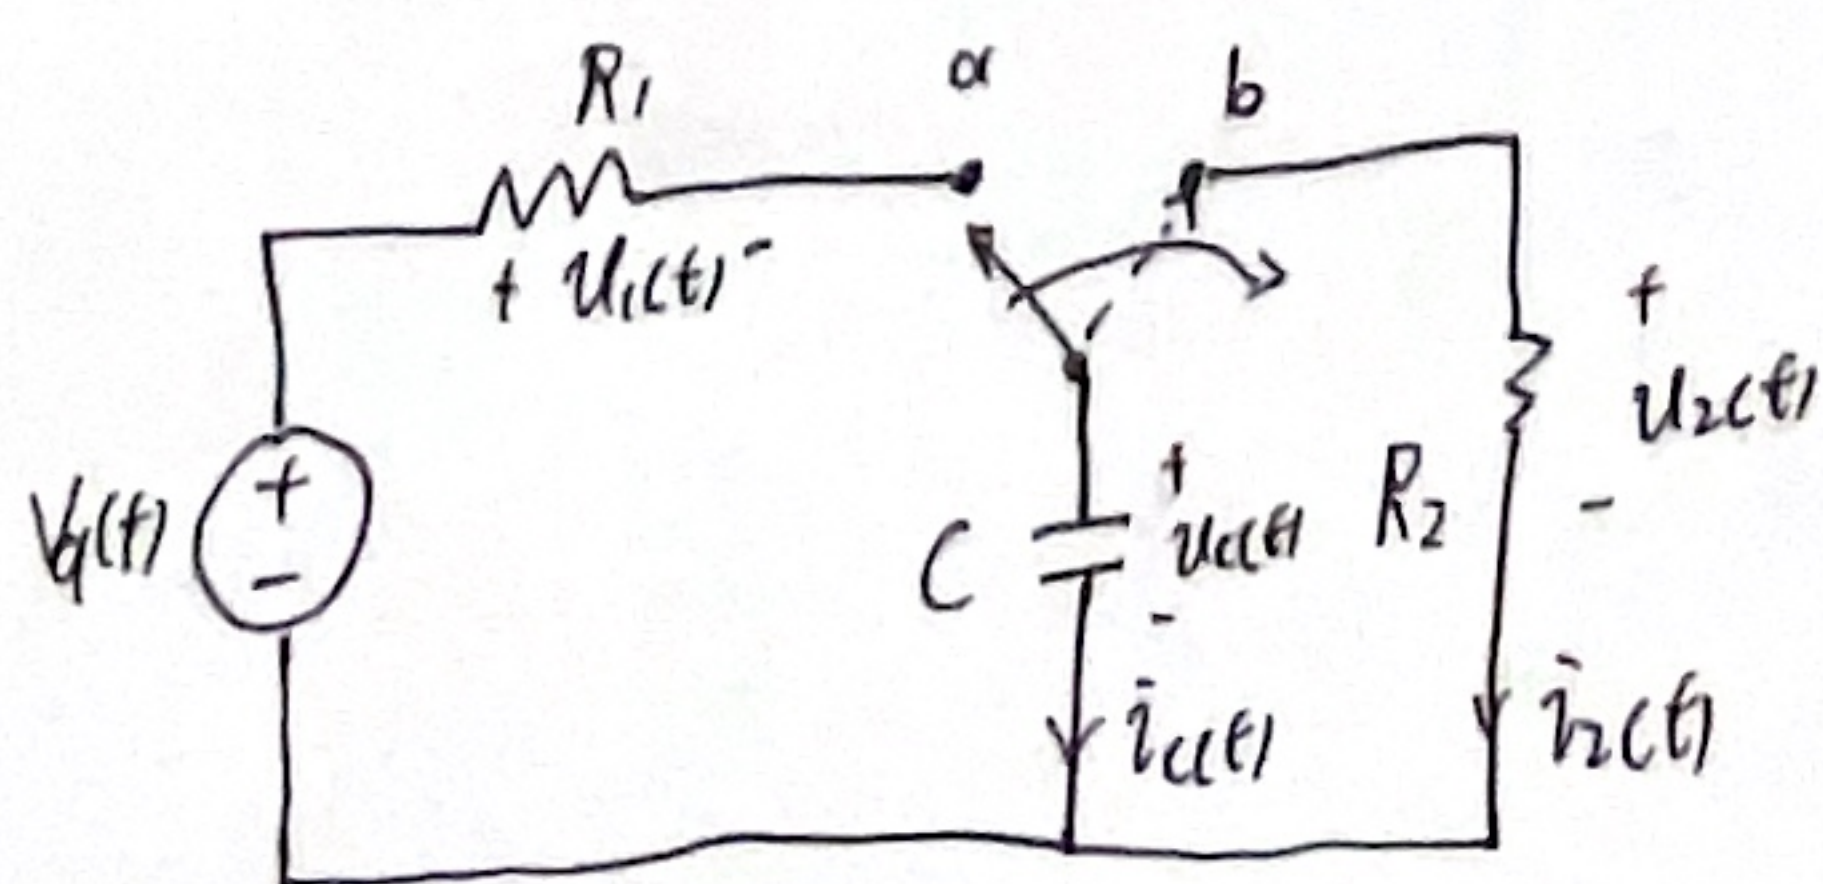 R1
a
b
+ u1(t) -
+
u2(t)
-
+
-
Vg(t)
C
+
uc(t)
-
R2
ic(t)
i2(t)